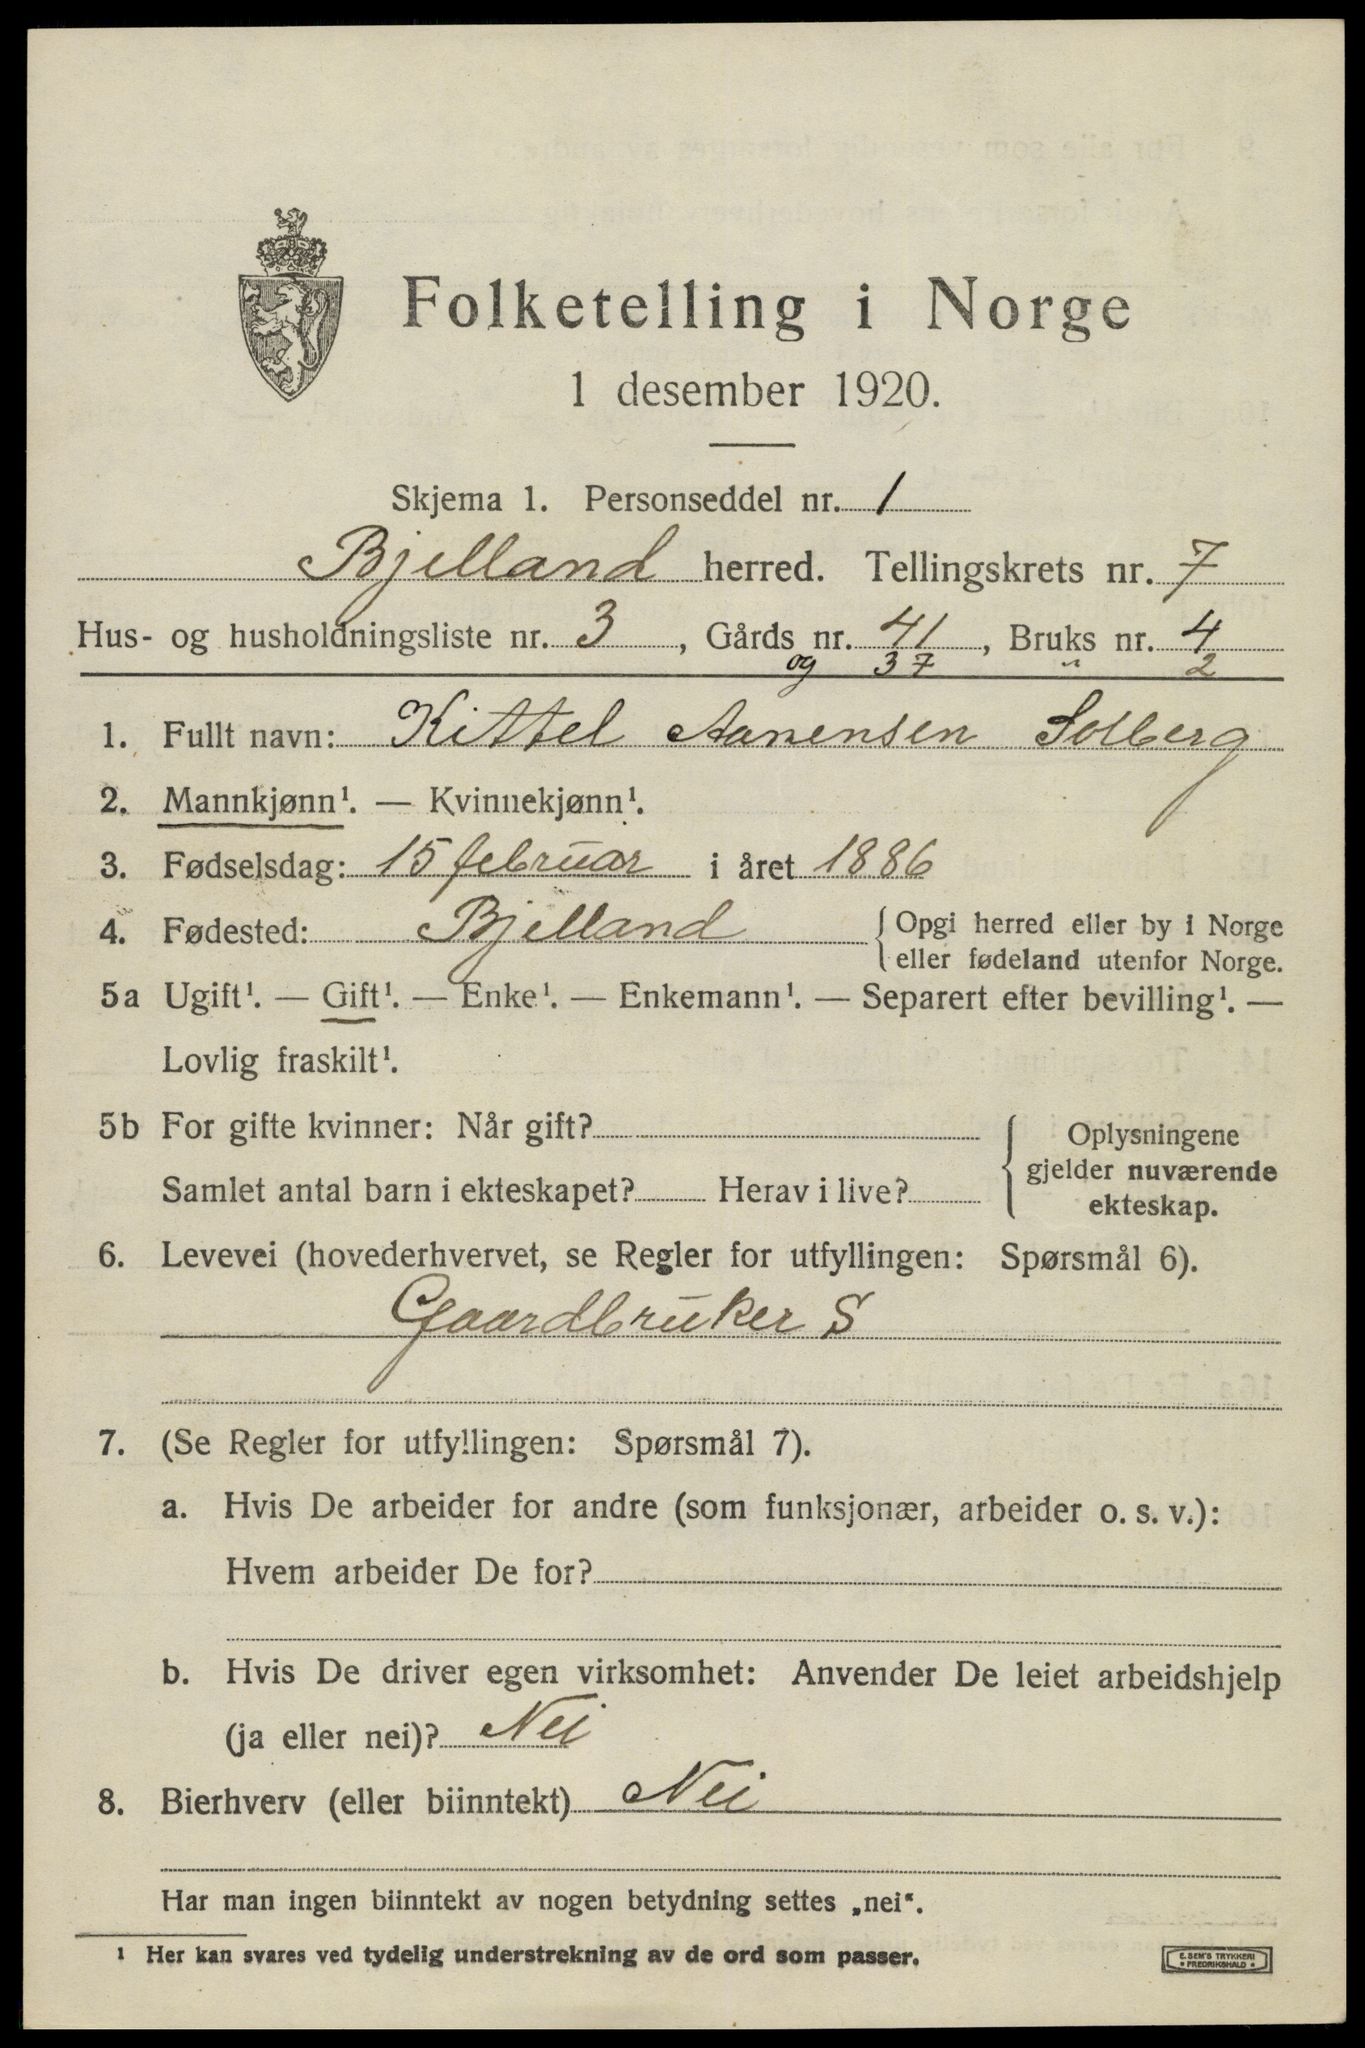 Folketelling i Norge
1 desember 1920.
Skjema 1. Personseddel nr. 1
Bjelland herred. Tellingskrets nr. 7
Hus- og husholdningsliste nr. 3, Gårds nr. 41, Bruks nr. 4
og 37 " 2
1. Fullt navn: Kittel Aanensen Solberg
2. Mannkjønn¹. — Kvinnekjønn¹.
3. Fødselsdag: 15 februar i året 1886
4. Fødested: Bjelland { Opgi herred eller by i Norge
eller fødeland utenfor Norge.
5a Ugift¹. — Gift¹. — Enke¹. — Enkemann¹. — Separert efter bevilling¹. —
Lovlig fraskilt¹.
5b For gifte kvinner: Når gift?
Samlet antal barn i ekteskapet? Herav i live?
Oplysningene
gjelder nuværende
ekteskap.
6. Levevei (hovederhvervet, se Regler for utfyllingen: Spørsmål 6).
Gaardbruker S
7. (Se Regler for utfyllingen: Spørsmål 7).
a. Hvis De arbeider for andre (som funksjonær, arbeider o. s. v.):
Hvem arbeider De for?
b. Hvis De driver egen virksomhet: Anvender De leiet arbeidshjelp
(ja eller nei)? Nei
8. Bierhverv (eller biinntekt) Nei
Har man ingen biinntekt av nogen betydning settes „nei".
¹ Her kan svares ved tydelig understrekning av de ord som passer.
E. SEM'S TRYKKERI
• FREDRIKSHALD •